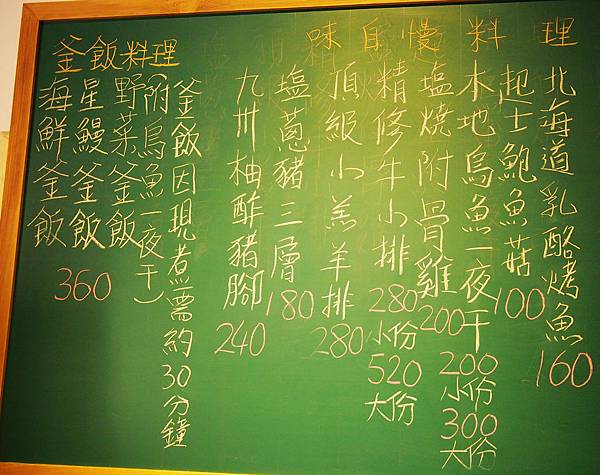 味自慢料理
北海道乳酪烤魚
160
起士鮑魚菇
100
本地烏魚一夜干
200
小份
300
大份
塩燒附骨雞
200
精修牛小排
280
小份
520
大份
頂級小羔羊排
280
塩蔥豬三層
180
九州柚酢豬腳
240
釜飯料理
釜飯因現煮需約30分鐘
(附烏魚一夜干)
野菜釜飯
星鰻釜飯
海鮮釜飯
360